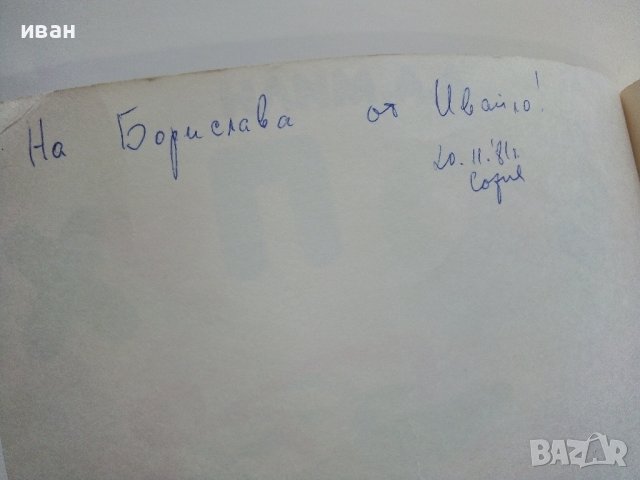 иван
На Борислава от Ивайло!
20.11.'81г.
София
BAZAR